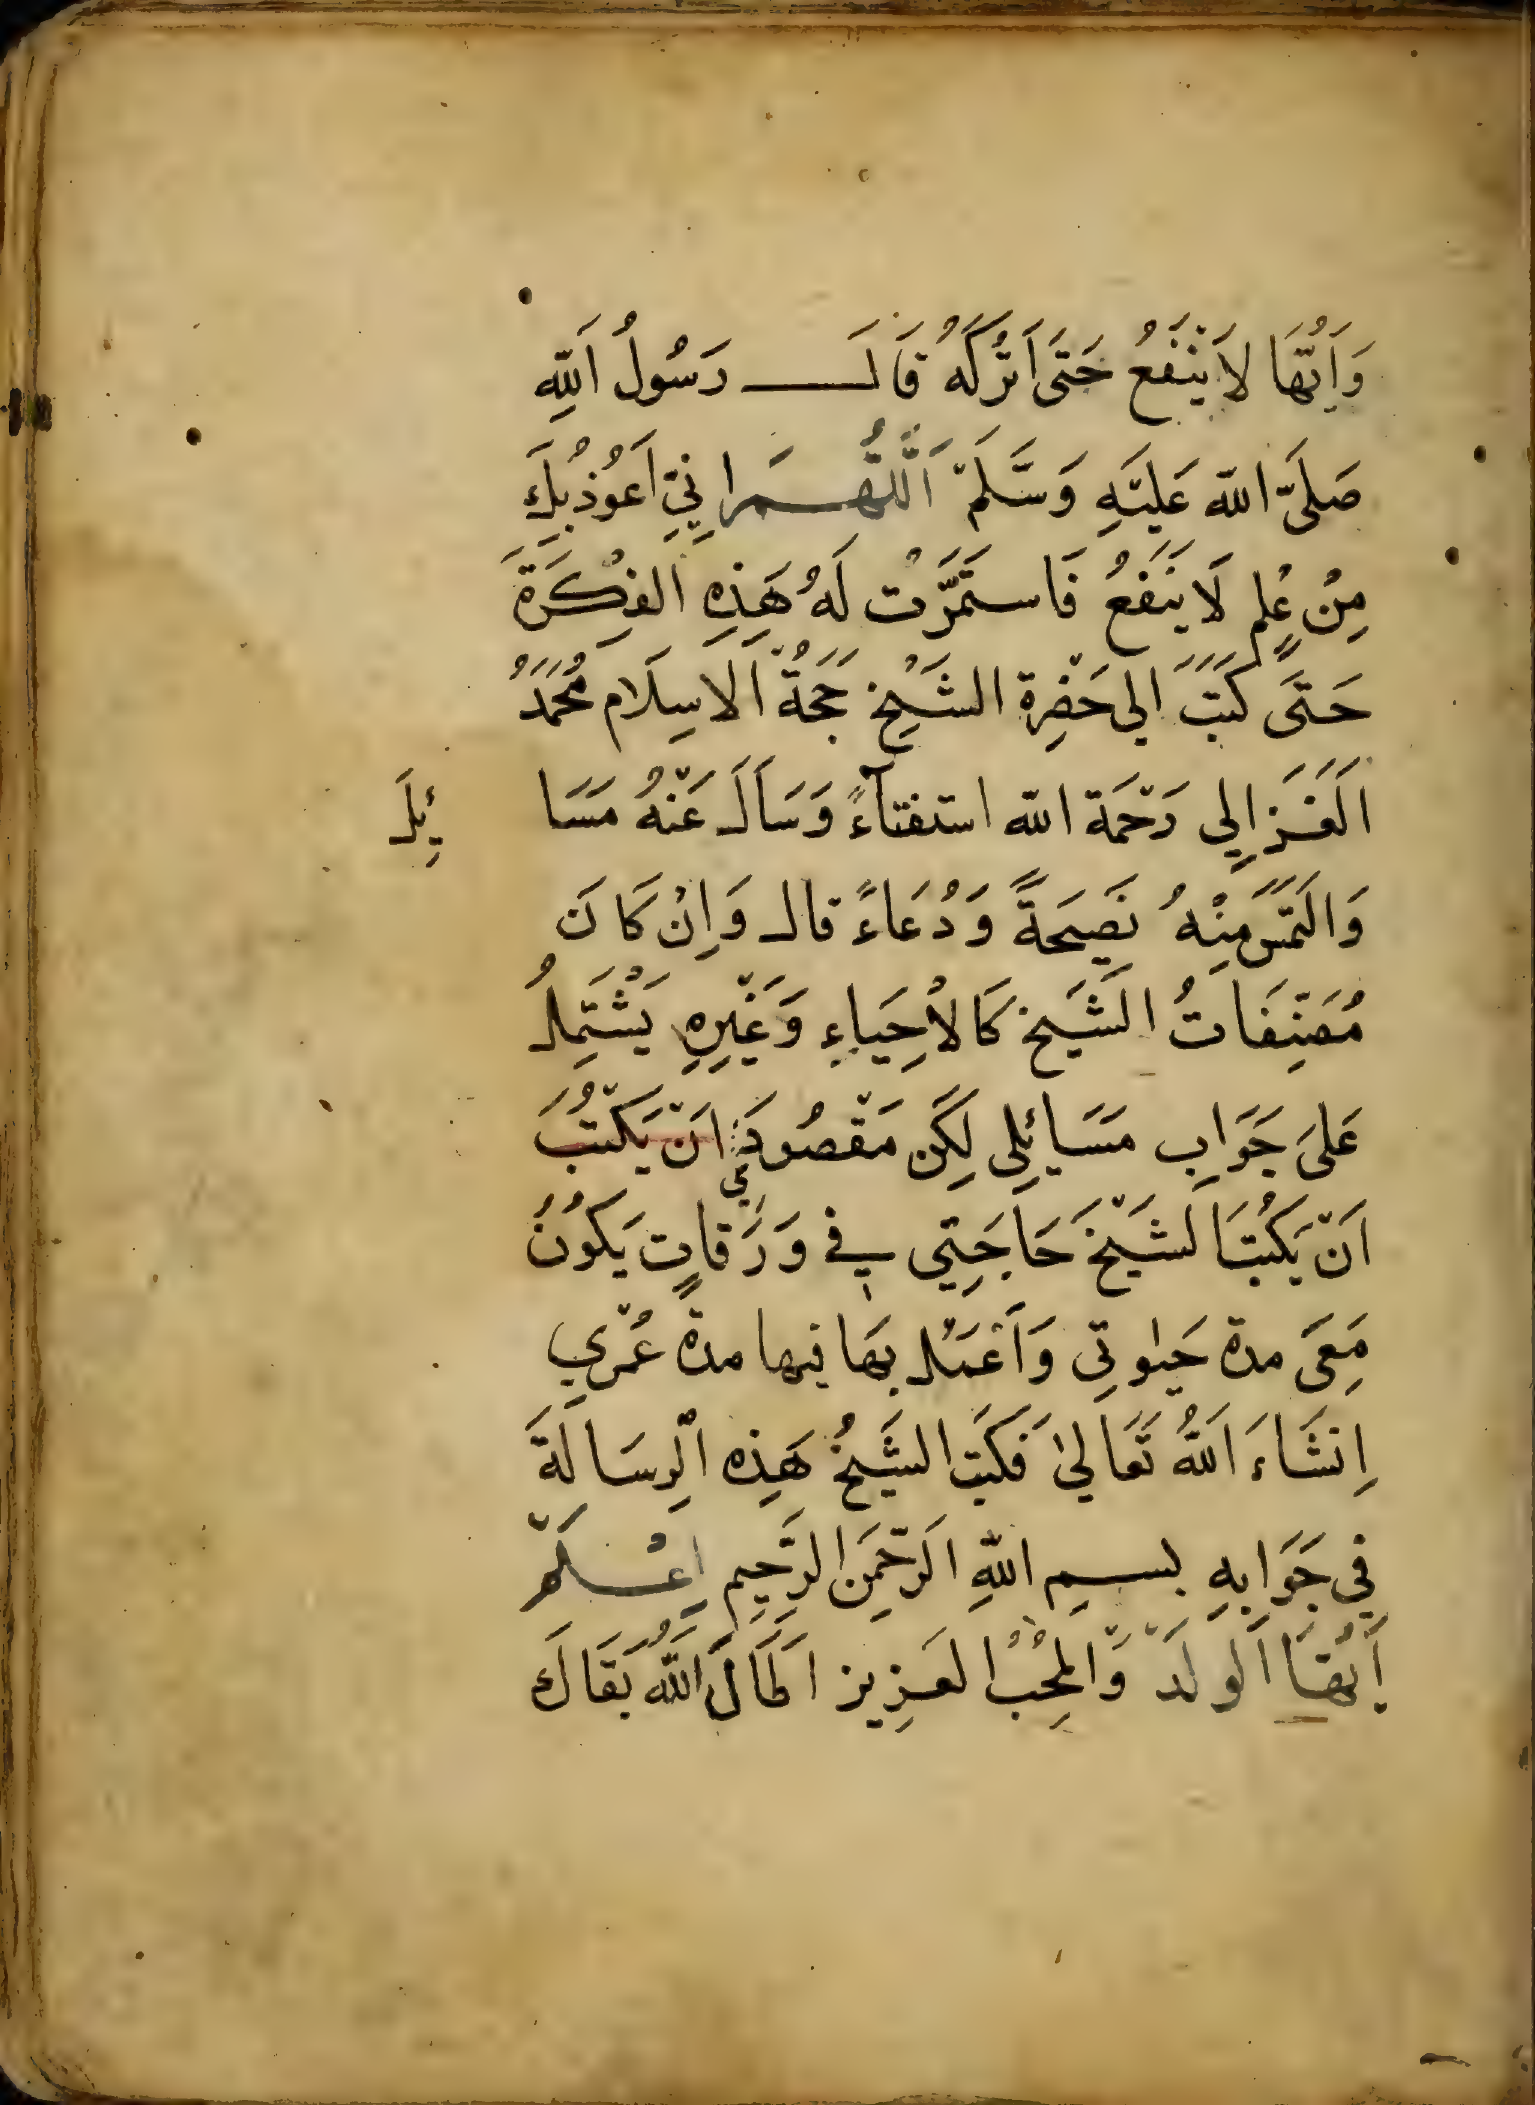 وَاَيُّهَا لَا يَنْفَعُ حَتَى اَتْرُكَهُ قَالَ رَسُولُ اَللّٰهِ
صَلَىَّ اللّٰه عَلَيْهِ وَسَّلَمْ اَللَّهُمَ اِنِيِّ اَعُوُذُ بِكَ
مِنْ عِلْمٍ لَا يَنَفَعُ فَاستَمَرَّتْ لَهُ هَذِهِ الفِكْرَةَ
حَتَى كَتَبَ الي حَضْرِة الشَيْخِ حَجَةُ اَلاسِلَام مُحَمَدُ
اَلغَزَالِي رَحْمَة اللّٰه استفتآءً وَسَاَلَ عَنْهُ مَسَائِلَ
وَالَتَمَسَ مِنْهُ نَصِيَحَةً وَدُعَاءً قال وَاِنْ كَانَ
مُصَنِفَاتُ الشَيَخِ كَالاْحِيَاءِ وَغَيْرِهِ يَشْتَمِلُ
عَلىَ جَوَابِ مَسَائِلِى لَكِن مَقْصُودِي اَنْ يَكتُبَ
اَنْ يَكتُبَ الشَيْخَ حَاجَتِي في وَرَقاتٍ يَكوُنُ
مَعِىَ مدة حَيٰوتِى وَاَعْمَل بهَا فيها مدة عُمْرِي
اِنشَاءَ اَللّٰهُ تَعَالىٰ فَكَتَب الشَيْخُ هَذِه الْرِسَالَةَ
فِي جَوَابِهِ بسمِ اللّٰهِ الرَحْمَنِ الرَحِيمِ اِعْلَمْ
اَيُهَا اَلولَدْ وَالمُحِبْ العَزِيز اَطَالَ اَللّٰهُ بَقَاكَ